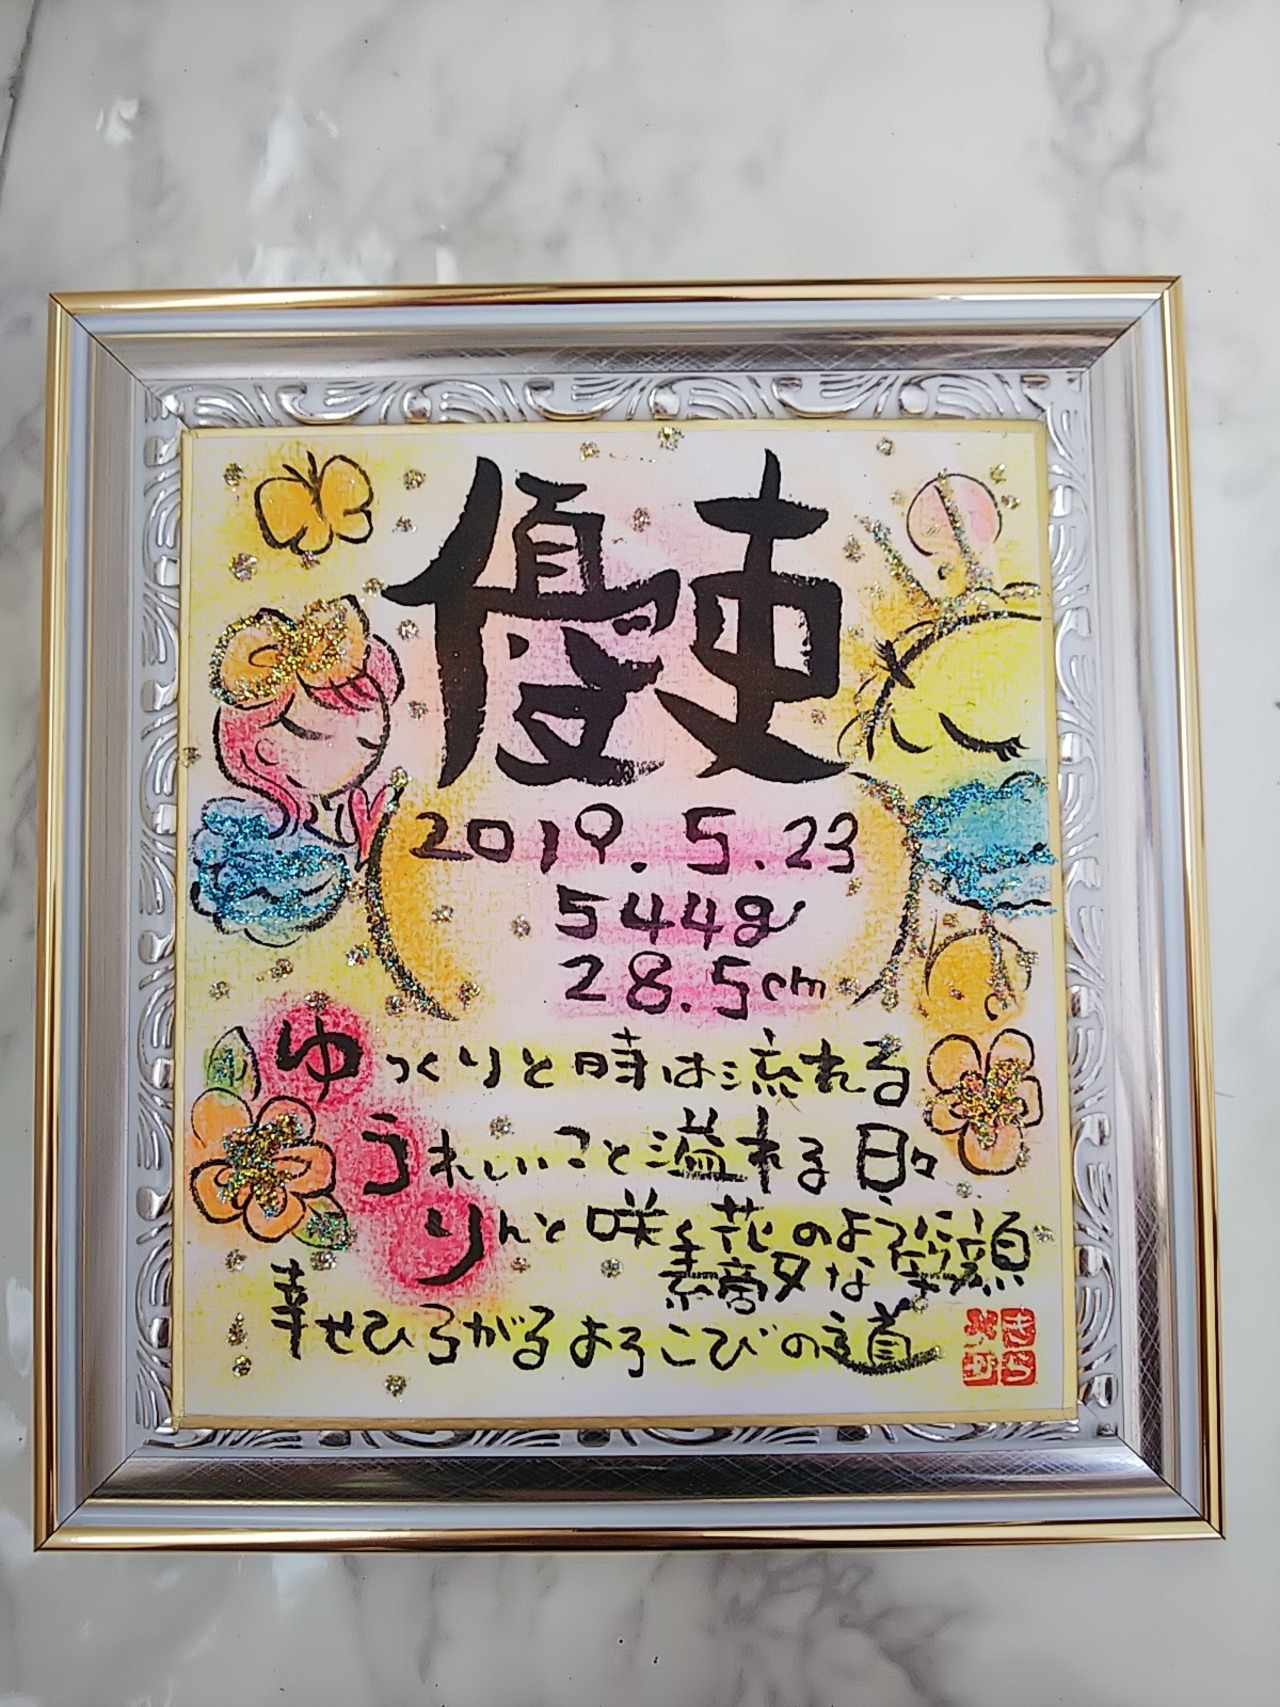 優吏
2019.5.23
544g
28.5cm
ゆっくりと時は流れる
うれしいこと溢れる日々
りんと咲く花のような笑顔
素敵な
幸せひろがるよろこびの道